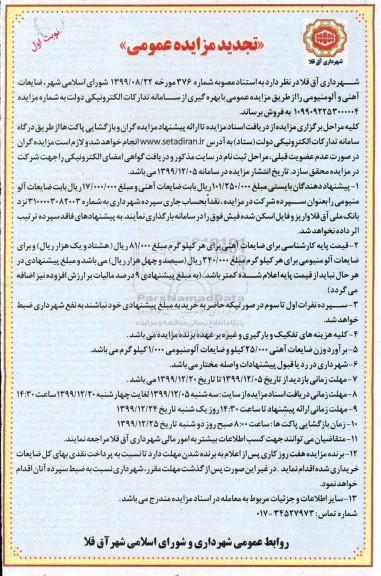 نوبت اول
«تجدید مزایده عمومی»
شهرداری آق قلا
شهرداری آق قلا در نظر دارد به استناد مصوبه شماره ۳۷۶ مورخه ۱۳۹۹/۰۸/۲۲ شورای اسلامی شهر، ضایعات
آهنی و آلومنیومی را از طریق مزایده عمومی با بهره گیری از سامانه تدارکات الکترونیکی دولت به شماره مزایده
۱۰۹۹۰۹۲۲۵۳۰۰۰۰۰۴ به فروش برساند.
کلیه مراحل برگزاری مزایده از دریافت اسناد مزایده تا ارائه پیشنهاد مزایده گران و بازگشایی پاکت ها از طریق درگاه
سامانه تدارکات الکترونیکی دولت (ستاد) به آدرس www.setadiran.ir انجام خواهد شد و لازم است مزایده گران
در صورت عدم عضویت قبلی، مراحل ثبت نام در سایت مذکور و دریافت گواهی امضای الکترونیکی را جهت شرکت
در مزایده محقق سازد. تاریخ انتشار مزایده در سامانه ۱۳۹۹/۱۲/۰۵ می باشد.
۱- پیشنهاد دهندگان بایستی مبلغ ۱۰۱/۲۵۰/۰۰۰ ریال بابت ضایعات آهنی و مبلغ ۱۷/۰۰۰/۰۰۰ ریال بابت ضایعات آلو
منیومی را بعنوان سپرده شرکت در مزایده، نقداً بحساب جاری سپرده شهرداری به شماره ۳۱۰۰۰۰۳۰۸۲۰۰۳ نزد
بانک ملی آق قلا واریز و فایل اسکن شده فیش فوق را در سامانه بارگذاری نمایند. به پیشنهادهای فاقد سپرده ترتیب
اثر داده نخواهد شد.
۲- قیمت پایه کارشناسی برای ضایعات آهنی برای هر کیلو گرم مبلغ ۸۱/۰۰۰ ریال (هشتاد و یک هزار ریال) و برای
ضایعات آلو منیومی برای هر کیلو گرم مبلغ ۳۴۰/۰۰۰ ریال (سیصد و چهل هزار ریال) می باشد و مبلغ پیشنهادی در
هر حال نباید از قیمت پایه اعلام شده کمتر باشد. (به مبلغ پیشنهادی ۹ درصد مالیات بر ارزش افزوده نیز اضافه
می گردد)
۳- سپرده نفرات اول تا سوم در صورتیکه حاضر به خرید به مبلغ پیشنهادی خود نباشند به نفع شهرداری ضبط
خواهد شد.
۴- کلیه هزینه های تفکیک و بارگیری و غیره بر عهده برنده مزایده می باشد.
۵- برآورد وزن ضایعات آهنی ۲۵/۰۰۰ کیلو و ضایعات آلومنیومی ۱/۰۰۰ کیلو گرم می باشد.
۶- شهرداری در رد یا قبول پیشنهادات واصله مختار می باشد.
۷- مهلت زمانی بازدید از تاریخ ۱۳۹۹/۱۲/۰۵ تا تاریخ ۱۳۹۹/۱۲/۲۰ می باشد.
۸- مهلت زمانی دریافت اسناد مزایده از سایت: سه شنبه ۱۳۹۹/۱۲/۰۵ لغایت چهار شنبه ۱۳۹۹/۱۲/۲۰ ساعت ۱۴:۳۰
۹- مهلت زمانی ارائه پیشنهاد تا ساعت ۱۴:۳۰ روز یک شنبه تاریخ ۱۳۹۹/۱۲/۲۴
۱۰- زمان بازگشایی پاکت ها: ساعت ۸:۰۰ صبح روز دو شنبه تاریخ ۱۳۹۹/۱۲/۲۵
۱۱- متقاضیان می توانند جهت کسب اطلاعات بیشتر به امور مالی شهرداری آق قلا مراجعه نمایند.
۱۲- برنده مزایده هفت روز کاری پس از اعلام به برنده شدن مهلت دارد تا نسبت به پرداخت نقدی بهای کل ضایعات
خریداری شده اقدام نماید. در غیر این صورت پس از گذشت مهلت مقرر، شهرداری نسبت به ضبط سپرده آنان اقدام
خواهد نمود.
۱۳- سایر اطلاعات و جزئیات مربوط به معامله در اسناد مزایده مندرج می باشد.
شماره تماس: ۳۴۵۲۷۹۷۳-۰۱۷
روابط عمومی شهرداری و شورای اسلامی شهر آق قلا